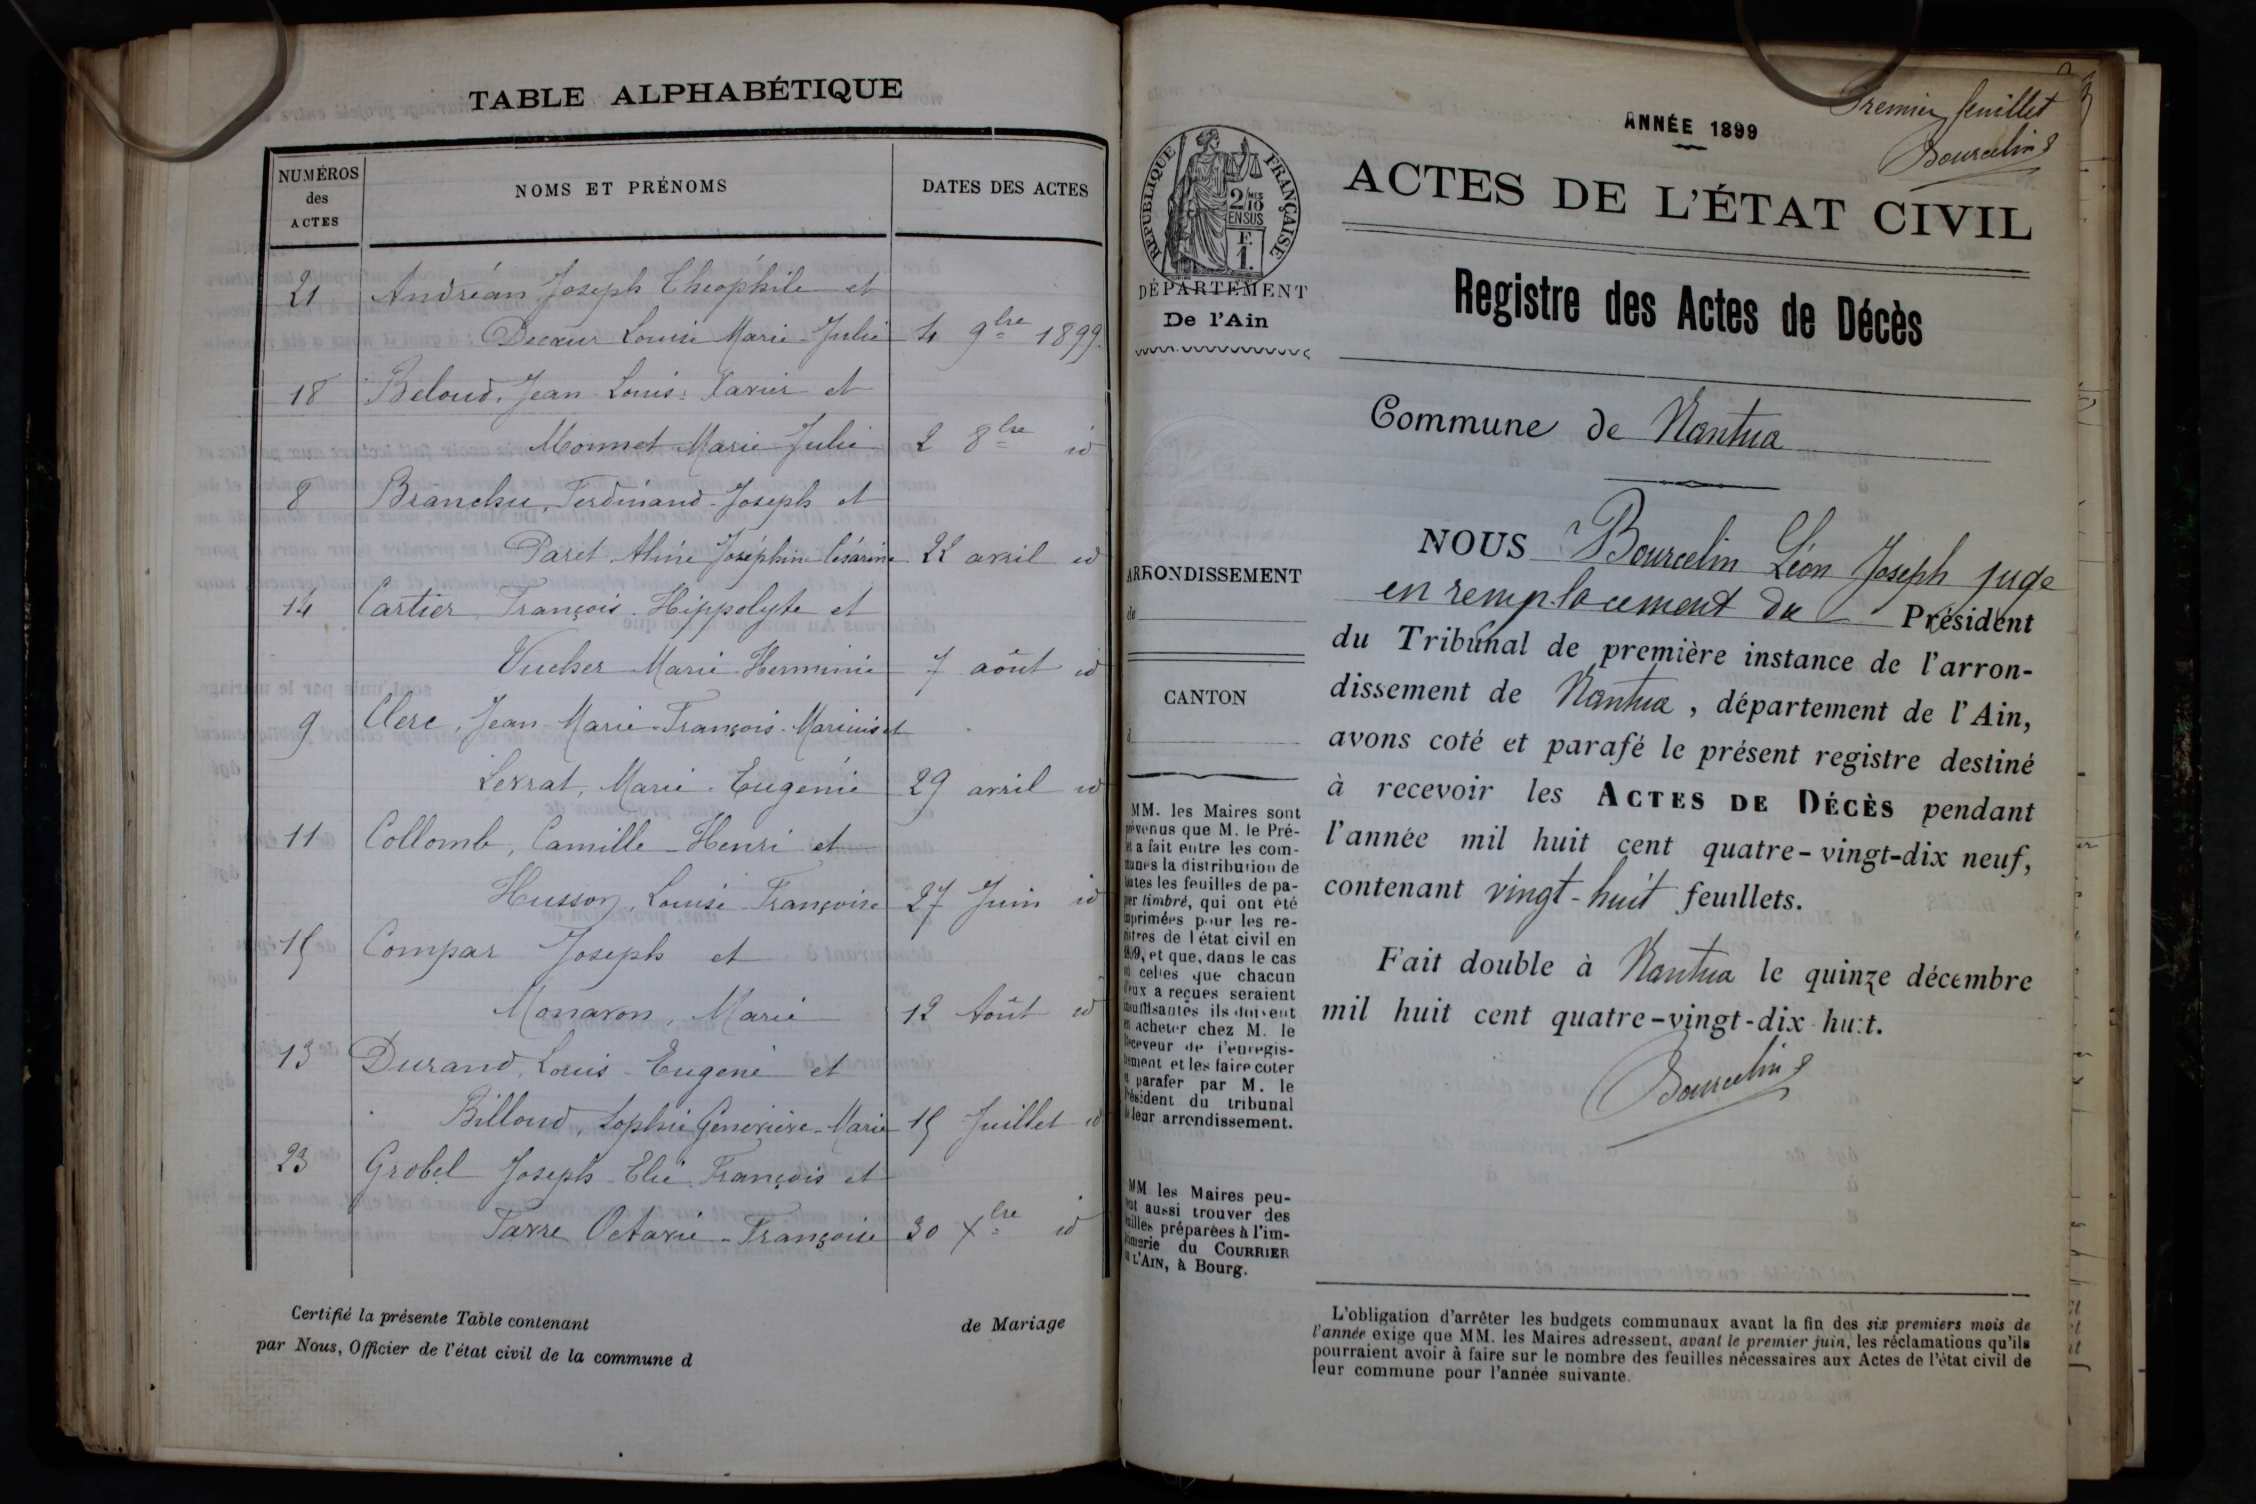 TABLE ALPHABÉTIQUE
NUMÉROS des ACTES
NOMS ET PRÉNOMS
DATES DES ACTES
21 Andréan Joseph Théophile et
Decœur Louise Marie-Julie 4 9bre 1899.
18 Beloud, Jean-Louis-Xavier et
Monnet Marie-Julie 2 8bre id
8 Branchu, Ferdinand-Joseph et
Paret Aline Joséphine Césarine 22 avril id
14 Cartier François-Hippolyte et
Vucher Marie-Herminie 7 aôut id
9 Clerc, Jean-Marie-François-Marius et
Levrat, Marie-Eugénie 29 avril id
11 Collomb, Camille-Henri et
Husson, Louise-Françoise 27 Juin id
15 Compar Joseph et
Monavon, Marie 12 Août id
13 Durand, Louis-Eugène et
Billoud, Sophie Geneviève-Marie 15 Juillet id
23 Grobel Joseph-Elie François et
Favre Octavie-Françoise 30 Xbre id
Certifié la présente Table contenant de Mariage
par Nous, Officier de l'état civil de la commune d
Premier feuillet
Bourcelin
ANNÉE 1899
RÉPUBLIQUE FRANÇAISE
2/10 MES
EN SUS
F.
1.
DÉPARTEMENT
De l'Ain
ACTES DE L'ÉTAT CIVIL
Registre des Actes de Décès
Commune de Nantua
NOUS Bourcelin Léon Joseph juge
en remplacement du Président
du Tribunal de première instance de l'arron-
dissement de Nantua, département de l'Ain,
avons coté et parafé le présent registre destiné
à recevoir les ACTES DE DÉCÈS pendant
l'année mil huit cent quatre-vingt-dix neuf,
contenant vingt-huit feuillets.
Fait double à Nantua le quinze décembre
mil huit cent quatre-vingt-dix huit.
Bourcelin
ARRONDISSEMENT
de
CANTON
d
MM. les Maires sont
prévenus que M. le Pré-
fet a fait entre les com-
munes la distribution de
toutes les feuilles de pa-
pier timbré, qui ont été
imprimées pour les re-
gistres de l'état civil en
1899, et que, dans le cas
où celles que chacun
d'eux a reçues seraient
insuffisantes ils doivent
en acheter chez M. le
Receveur de l'enregis-
trement et les faire coter
et parafer par M. le
Président du tribunal
de leur arrondissement.
MM les Maires peu-
vent aussi trouver des
feuilles préparées à l'im-
primerie du COURRIER
DE L'AIN, à Bourg.
L'obligation d'arrêter les budgets communaux avant la fin des six premiers mois de
l'année exige que MM. les Maires adressent, avant le premier juin, les réclamations qu'ils
pourraient avoir à faire sur le nombre des feuilles nécessaires aux Actes de l'état civil de
leur commune pour l'année suivante.